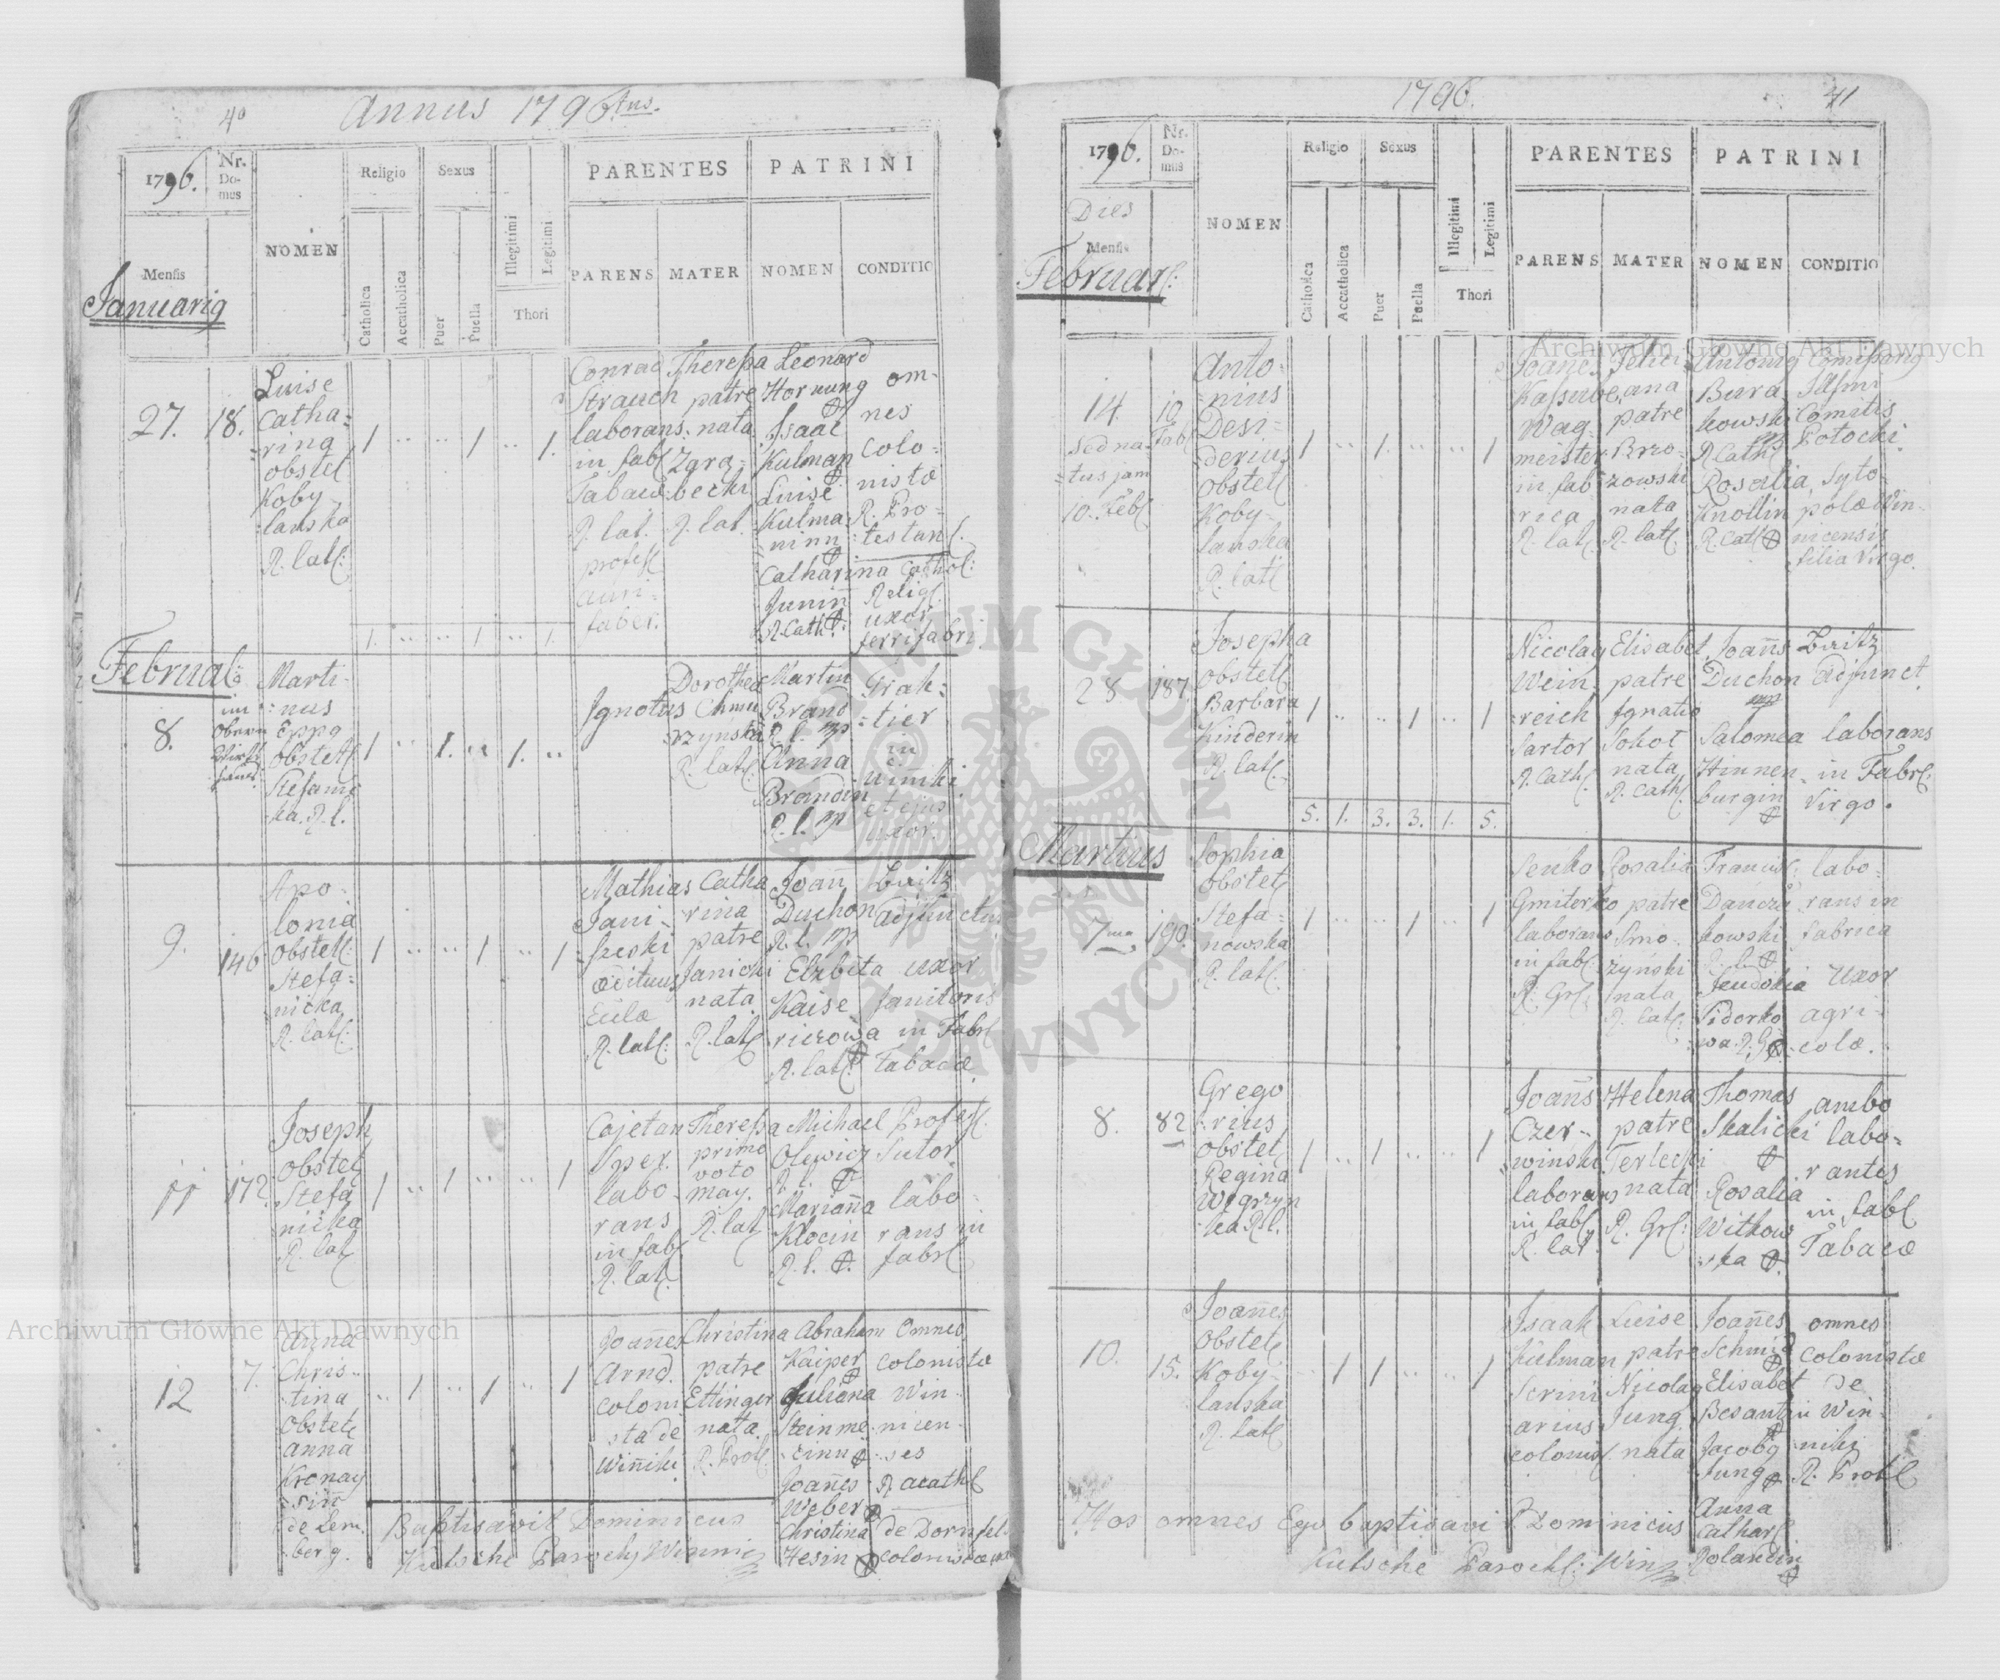 40
Annus 1796tus.
1796.
Nr. Do-mus
NOMEN
Religio
Sexus
Illegitimi
Legitimi
PARENTES
PATRINI
Mensis
Catholica
Accatholica
Puer
Puella
Thori
PARENS
MATER
NOMEN
CONDITIO
Januarig
27.
18.
Luise
Catha-
rina
obstet
Koby-
lanska
R. lat:
1 .. .. 1 .. 1.
Conrad
Strauch
laborans
in fab
Tabacæ
R. lat.
profess
auri-
faber.
Theresa
patre
nata
Zgra-
becki
R. lat.
Leonard
Hornung
Isaac
Kulman
Luise
Kulma-
ninn
Catharina
Junin
R. Cath:
om-
nes
colo-
nistæ
R. Pro-
testan.
Cathol:
Relig.
uxor
ferrifabri
1. .. .. 1 .. 1.
Februar:
8.
im
obern
Wirts
haus.
Marti-
nus
Eppa
obstet
Stefanic
ka. R. l.
1 .. 1. .. 1. ..
Ignotus
Dorothea
Chmu
rzynska
R. lat
Martin
Brand
R. l.
Anna
Brandin
R. l.
Trak-
tier
in
Winiki
et ejus
uxor.
9.
146
Apo-
lonia
obstet:
Stefa-
nicka
R. lat:
1 .. .. 1 .. 1
Mathias
Jani-
szeski
ædituus
Eulæ
R. lat:
Catha
rina
patre
Janicki
nata
R. lat
Joan
Duchon
R. l.
Elzbieta
Kaise
riczowa
R. lat:
Britz
adjunctus
uxor
janitoris
in Fabr
Tabacæ
11
172
Joseph
obstet
Stefa
nicka
R. lat
1 .. 1 .. .. 1
Cajetan
Sper.
labo-
rans
in fab
R. lat.
Theresa
primo
voto
may.
R. lat
Michael
Olewicz
R. l.
Marianna
Klocin
R. l.
Profess:
Sutor
labo
rans in
fabr
12
7.
Anna
Chris-
tina
obstet
anna
Kronay
sin
de Lem-
berg.
.. 1 .. 1 .. 1
Joannes
Arnd.
coloni
sta de
Winiki
Christina
patre
Ettinger
nata.
R. Prot
Abraham
Kaiper
Juliana
Steinme
cinn
Joannes
Weber
Christina
Hesin
omnes
colonistæ
Win-
nicen-
ses
R. acath
de Dornfel
colonistæ
Baptisavit Dominicus
Kutsche Paroch Winnic
1796.
41
1796.
Nr. Do-mus
NOMEN
Religio
Sexus
Illegitimi
Legitimi
PARENTES
PATRINI
Dies
Mensis
Catholica
Accatholica
Puer
Puella
Thori
PARENS
MATER
NOMEN
CONDITIO
Februar:
14.
sed na-
tus jam
10. Feb
10
Fab
Anto-
nius
Desi-
derius
obstet
Koby-
lanska
R. lat
1 .. 1. .. .. 1
Joanes
Wag-
meister
in fab
rica
R. lat
Felici
ana
patre
Brzo-
zowski
nata
R. lat.
Antonig
Bura
kowski
R. Cath
Rosalia
Knollin
R. Cat
Comitis
Potocki
Syto-
polæ Win-
nicensis
filia Virgo.
28.
187.
Josepha
obstet.
Barbara
Kinderin
R. lat.
1 .. .. 1 .. 1
Nicolay
Wein-
reich
Sartor
R. Cath
Elisabet
patre
Ignatio
Sokol
nata
R. Cath
Joans
Duchon
Salomea
Hinnen-
burgin
Britz
adjunct.
laborans
in Fabr:
Virgo.
5. 1. 3. 3. 1. 5.
Martius
7ma
190.
Sophia
obstet
Stefa-
nowska
R. lat.
1 .. .. 1 .. 1
Senko
Gmiterko
laborans
in fab.
R. Gr:
Rosalia
patre
Smo-
rzynski
nata
R. Lat:
Francis:
Danczu
kowski
R. l.
Feudosia
Sidorko
wa. R. G
labo-
rans in
fabrica
Uxor
agri-
colæ.
8.
82
Grego
rius
obstet
Regina
Wegrzyn
ka R. l.
1 .. 1 .. .. 1
Joans
Czer-
winski
laborans
in fab
R. lat.
Helena
patre
Terlecki
nata
R. Gr:
Thomas
Skalicki
Rosalia
Witkow
ska
ambo
labo-
rantes
in fab
Tabacæ
10.
15.
Joannes
obstet
Koby-
lanska
R. lat
.. 1 1 .. .. 1
Isaak
Kulman
Scrini
arius
colonis
Luise
patre
Nicolay
Jung
nata
Joannes
Schmid
Elisabet
Besantin
Jacobg
Jung
Anna
Cathar
Rolandin
omnes
colonistæ
de
Win-
niki
R. Prot
Hos omnes Ego baptisavi Dominicus
Kutsche Paroch: Win
Archiwum Główne Akt Dawnych
Archiwum Główne Akt Dawnych
ARCHIWUM GŁÓWNE AKT DAWNYCH